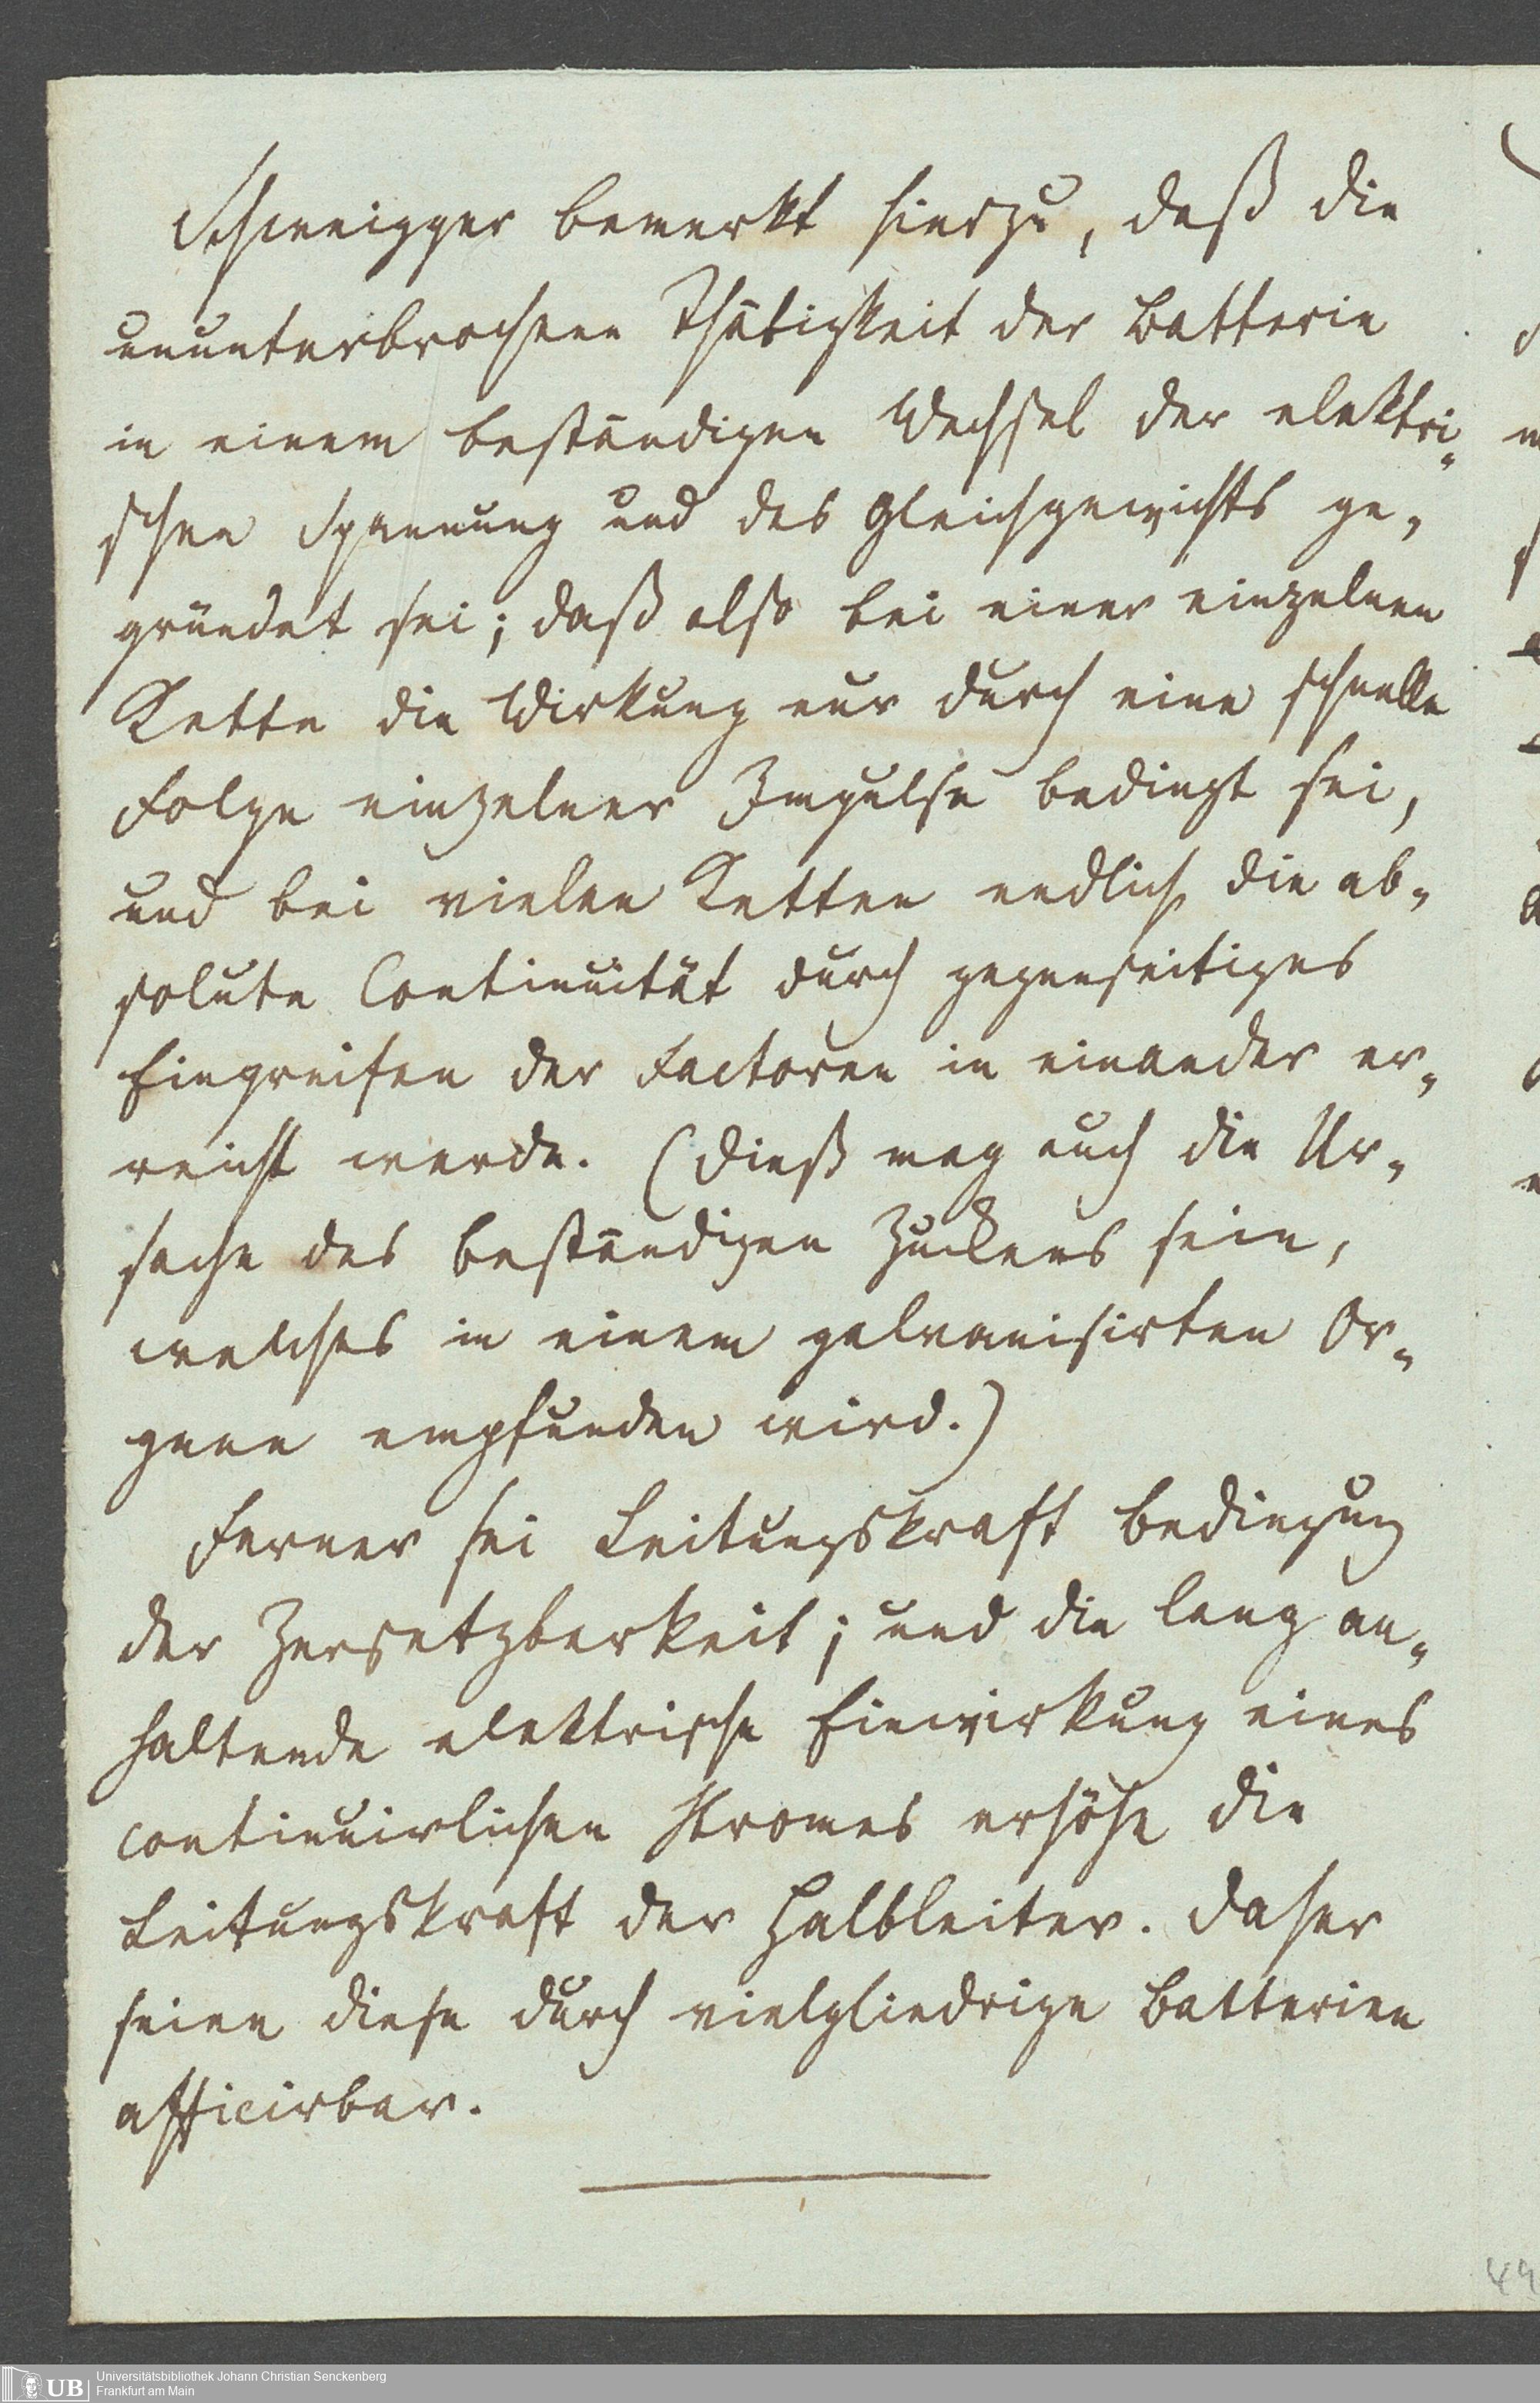 Schweigger bemerkt hierzu, daß die
ununterbrochene Thätigkeit der Batterie
in einem beständigen Wechsel der elektri-
schen Spannung und des Gleichgewichts ge-
gründet sei; daß also bei einer einzelnen
Kette die Wirkung nur durch eine schnelle
Folge einzelner Impulse bedingt sei,
und bei vielen Ketten endlich die ab-
solute Continuität durch gegenseitiges
Eingreifen der Factoren in einander er-
reicht werde. (Dieß mag auch die Ur-
sache des beständigen Zuckens sein,
welches in einem galvanisirten Or-
gane empfunden wird.)
Ferner sei Leitungskraft Bedingung
der Zersetzbarkeit; und die lang an-
haltende elektrische Einwirkung eines
continuirlichen Stromes erhöhe die
Leitungskraft der Halbleiter. Daher
seien diese durch vielgliedrige Batterien
afficirbar.
49
UB
Universitätsbibliothek Johann Christian Senckenberg
Frankfurt am Main